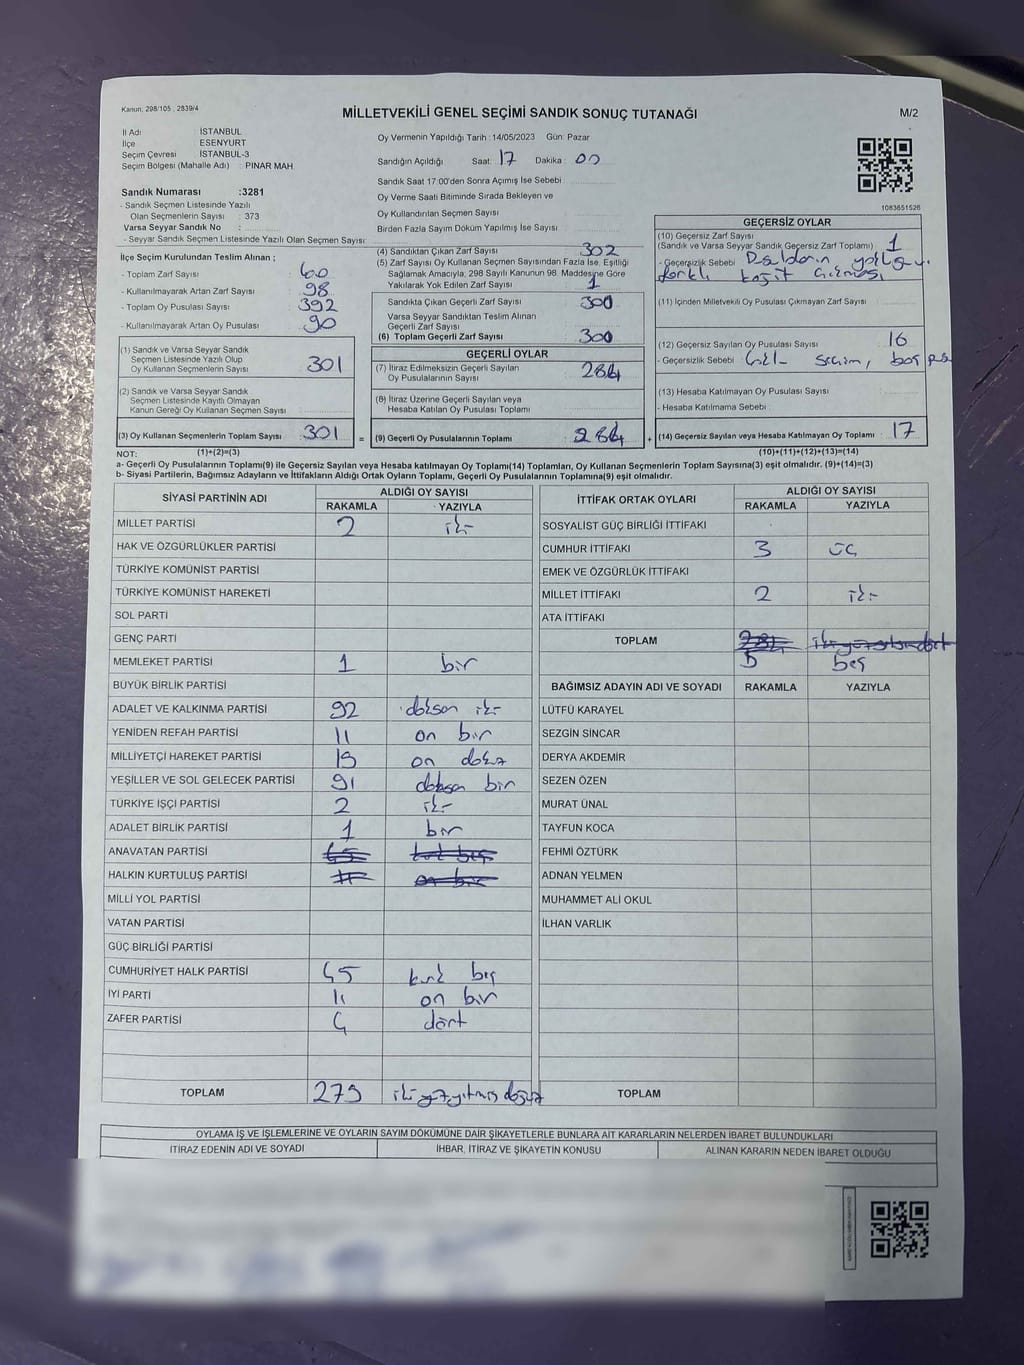 Kanun, 298/105 , 2839/4
MİLLETVEKİLİ GENEL SEÇİMİ SANDIK SONUÇ TUTANAĞI
M/2
İl Adı İSTANBUL
İlçe ESENYURT
Seçim Çevresi İSTANBUL-3
Seçim Bölgesi (Mahalle Adı) : PINAR MAH
Sandık Numarası :3281
- Sandık Seçmen Listesinde Yazılı
Olan Seçmenlerin Sayısı : 373
Varsa Seyyar Sandık No :
- Seyyar Sandık Seçmen Listesinde Yazılı Olan Seçmen Sayısı:
Oy Vermenin Yapıldığı Tarih : 14/05/2023 Gün: Pazar
Sandığın Açıldığı Saat: 17 Dakika : 00
Sandık Saat 17:00'den Sonra Açımış İse Sebebi
Oy Verme Saati Bitiminde Sırada Bekleyen ve
Oy Kullandırılan Seçmen Sayısı
Birden Fazla Sayım Döküm Yapılmış İse Sayısı
1083651526
İlçe Seçim Kurulundan Teslim Alınan ;
- Toplam Zarf Sayısı :
- Kullanılmayarak Artan Zarf Sayısı : 98
- Toplam Oy Pusulası Sayısı : 392
- Kullanılmayarak Artan Oy Pusulası : 90
(1) Sandık ve Varsa Seyyar Sandık
Seçmen Listesinde Yazılı Olup
Oy Kullanan Seçmenlerin Sayısı 301
(2) Sandık ve Varsa Seyyar Sandık
Seçmen Listesinde Kayıtlı Olmayan
Kanun Gereği Oy Kullanan Seçmen Sayısı
(3) Oy Kullanan Seçmenlerin Toplam Sayısı 301 =
(4) Sandıktan Çıkan Zarf Sayısı 302
(5) Zarf Sayısı Oy Kullanan Seçmen Sayısından Fazla İse, Eşitliği
Sağlamak Amacıyla, 298 Sayılı Kanunun 98. Maddesine Göre
Yakılarak Yok Edilen Zarf Sayısı 1
Sandıkta Çıkan Geçerli Zarf Sayısı 300
Varsa Seyyar Sandıktan Teslim Alınan
Geçerli Zarf Sayısı
(6) Toplam Geçerli Zarf Sayısı 300
GEÇERLİ OYLAR
(7) İtiraz Edilmeksizin Geçerli Sayılan
Oy Pusulalarının Sayısı 284
(8) İtiraz Üzerine Geçerli Sayılan veya
Hesaba Katılan Oy Pusulası Toplamı
(9) Geçerli Oy Pusulalarının Toplamı 284 +
GEÇERSİZ OYLAR
(10) Geçersiz Zarf Sayısı
(Sandık ve Varsa Seyyar Sandık Geçersiz Zarf Toplamı) 1
- Geçersizlik Sebebi
farklı kağıt çıkması
(11) İçinden Milletvekili Oy Pusulası Çıkmayan Zarf Sayısı
(12) Geçersiz Sayılan Oy Pusulası Sayısı 16
- Geçersizlik Sebebi seçim, boş
(13) Hesaba Katılmayan Oy Pusulası Sayısı
- Hesaba Katılmama Sebebi
(14) Geçersiz Sayılan veya Hesaba Katılmayan Oy Toplamı 17
NOT: (1)+(2)=(3) (10)+(11)+(12)+(13)=(14)
a- Geçerli Oy Pusulalarının Toplamı(9) ile Geçersiz Sayılan veya Hesaba katılmayan Oy Toplamı(14) Toplamları, Oy Kullanan Seçmenlerin Toplam Sayısına(3) eşit olmalıdır. (9)+(14)=(3)
b- Siyasi Partilerin, Bağımsız Adayların ve İttifakların Aldığı Ortak Oyların Toplamı, Geçerli Oy Pusulalarının Toplamına(9) eşit olmalıdır.
SİYASİ PARTİNİN ADI ALDIĞI OY SAYISI
RAKAMLA YAZIYLA
MİLLET PARTİSİ 2 iki
HAK VE ÖZGÜRLÜKLER PARTİSİ
TÜRKİYE KOMÜNİST PARTİSİ
TÜRKİYE KOMÜNİST HAREKETİ
SOL PARTİ
GENÇ PARTİ
MEMLEKET PARTİSİ 1 bir
BÜYÜK BİRLİK PARTİSİ
ADALET VE KALKINMA PARTİSİ 92 doksan iki
YENİDEN REFAH PARTİSİ 11 on bir
MİLLİYETÇİ HAREKET PARTİSİ 19 on dokuz
YEŞİLLER VE SOL GELECEK PARTİSİ 91 doksan bir
TÜRKİYE İŞÇİ PARTİSİ 2 iki
ADALET BİRLİK PARTİSİ 1 bir
ANAVATAN PARTİSİ 45 kırk beş
HALKIN KURTULUŞ PARTİSİ 11 on bir
MİLLİ YOL PARTİSİ
VATAN PARTİSİ
GÜÇ BİRLİĞİ PARTİSİ
CUMHURİYET HALK PARTİSİ 45 kırk beş
İYİ PARTİ 11 on bir
ZAFER PARTİSİ 4 dört
TOPLAM 279 iki yüz yetmiş dokuz
İTTİFAK ORTAK OYLARI ALDIĞI OY SAYISI
RAKAMLA YAZIYLA
SOSYALİST GÜÇ BİRLİĞİ İTTİFAKI
CUMHUR İTTİFAKI 3 üç
EMEK VE ÖZGÜRLÜK İTTİFAKI
MİLLET İTTİFAKI 2 iki
ATA İTTİFAKI
TOPLAM
5 beş
BAĞIMSIZ ADAYIN ADI VE SOYADI RAKAMLA YAZIYLA
LÜTFÜ KARAYEL
SEZGİN SİNCAR
DERYA AKDEMİR
SEZEN ÖZEN
MURAT ÜNAL
TAYFUN KOCA
FEHMİ ÖZTÜRK
ADNAN YELMEN
MUHAMMET ALİ OKUL
İLHAN VARLIK
TOPLAM
OYLAMA İŞ VE İŞLEMLERİNE VE OYLARIN SAYIM DÖKÜMÜNE DAİR ŞİKAYETLERLE BUNLARA AİT KARARLARIN NELERDEN İBARET BULUNDUKLARI
İTİRAZ EDENİN ADI VE SOYADI İHBAR, İTİRAZ VE ŞİKAYETİN KONUSU ALINAN KARARIN NEDEN İBARET OLDUĞU